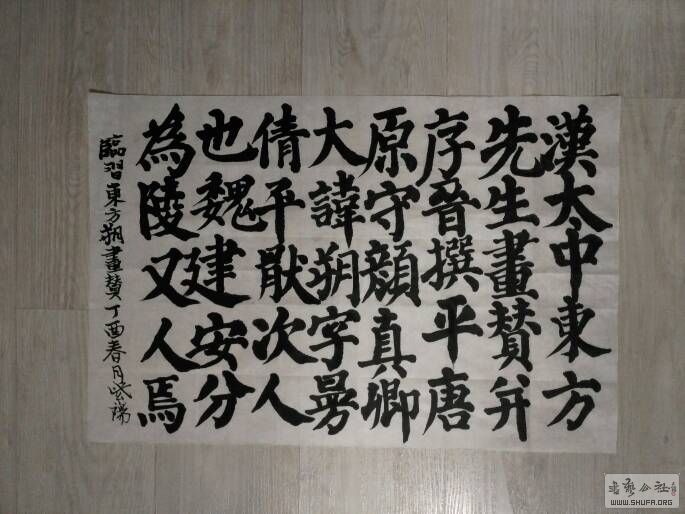 漢太中東方
先生畫贊并
序晉撰平唐
原守顏真卿
大諱朔字曼
倩平猒次人
也魏建安分
為陵又人焉
臨習東方朔畫贊丁酉春月紫陽
WWW.SHUFA.ORG